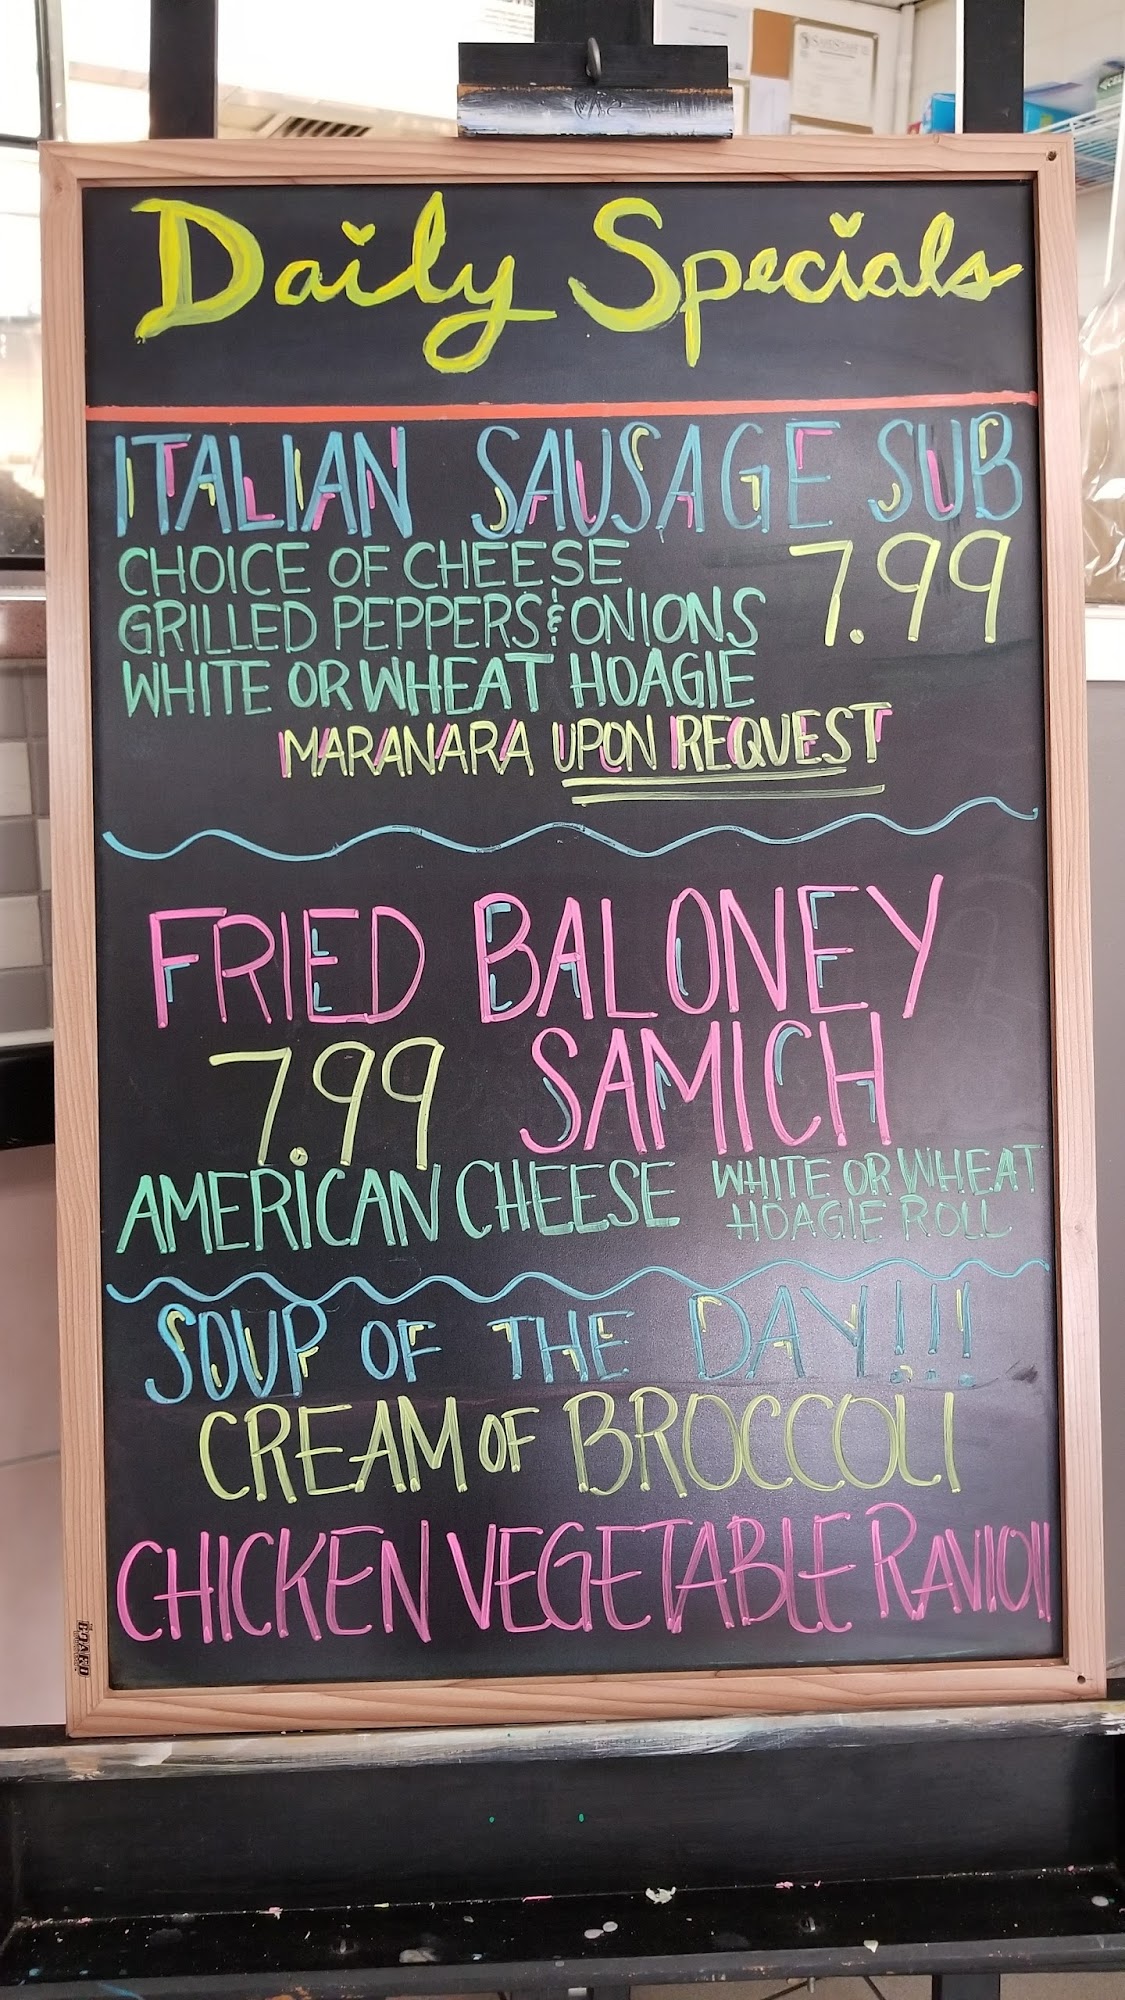 Daily Specials
ITALIAN SAUSAGE SUB
CHOICE OF CHEESE 7.99
GRILLED PEPPERS & ONIONS
WHITE OR WHEAT HOAGIE
MARANARA UPON REQUEST
FRIED BALONEY
7.99 SAMICH
AMERICAN CHEESE WHITE OR WHEAT
HOAGIE ROLL
SOUP OF THE DAY!!!
CREAM OF BROCCOLI
CHICKEN VEGETABLE RAVIOLI
BOARD